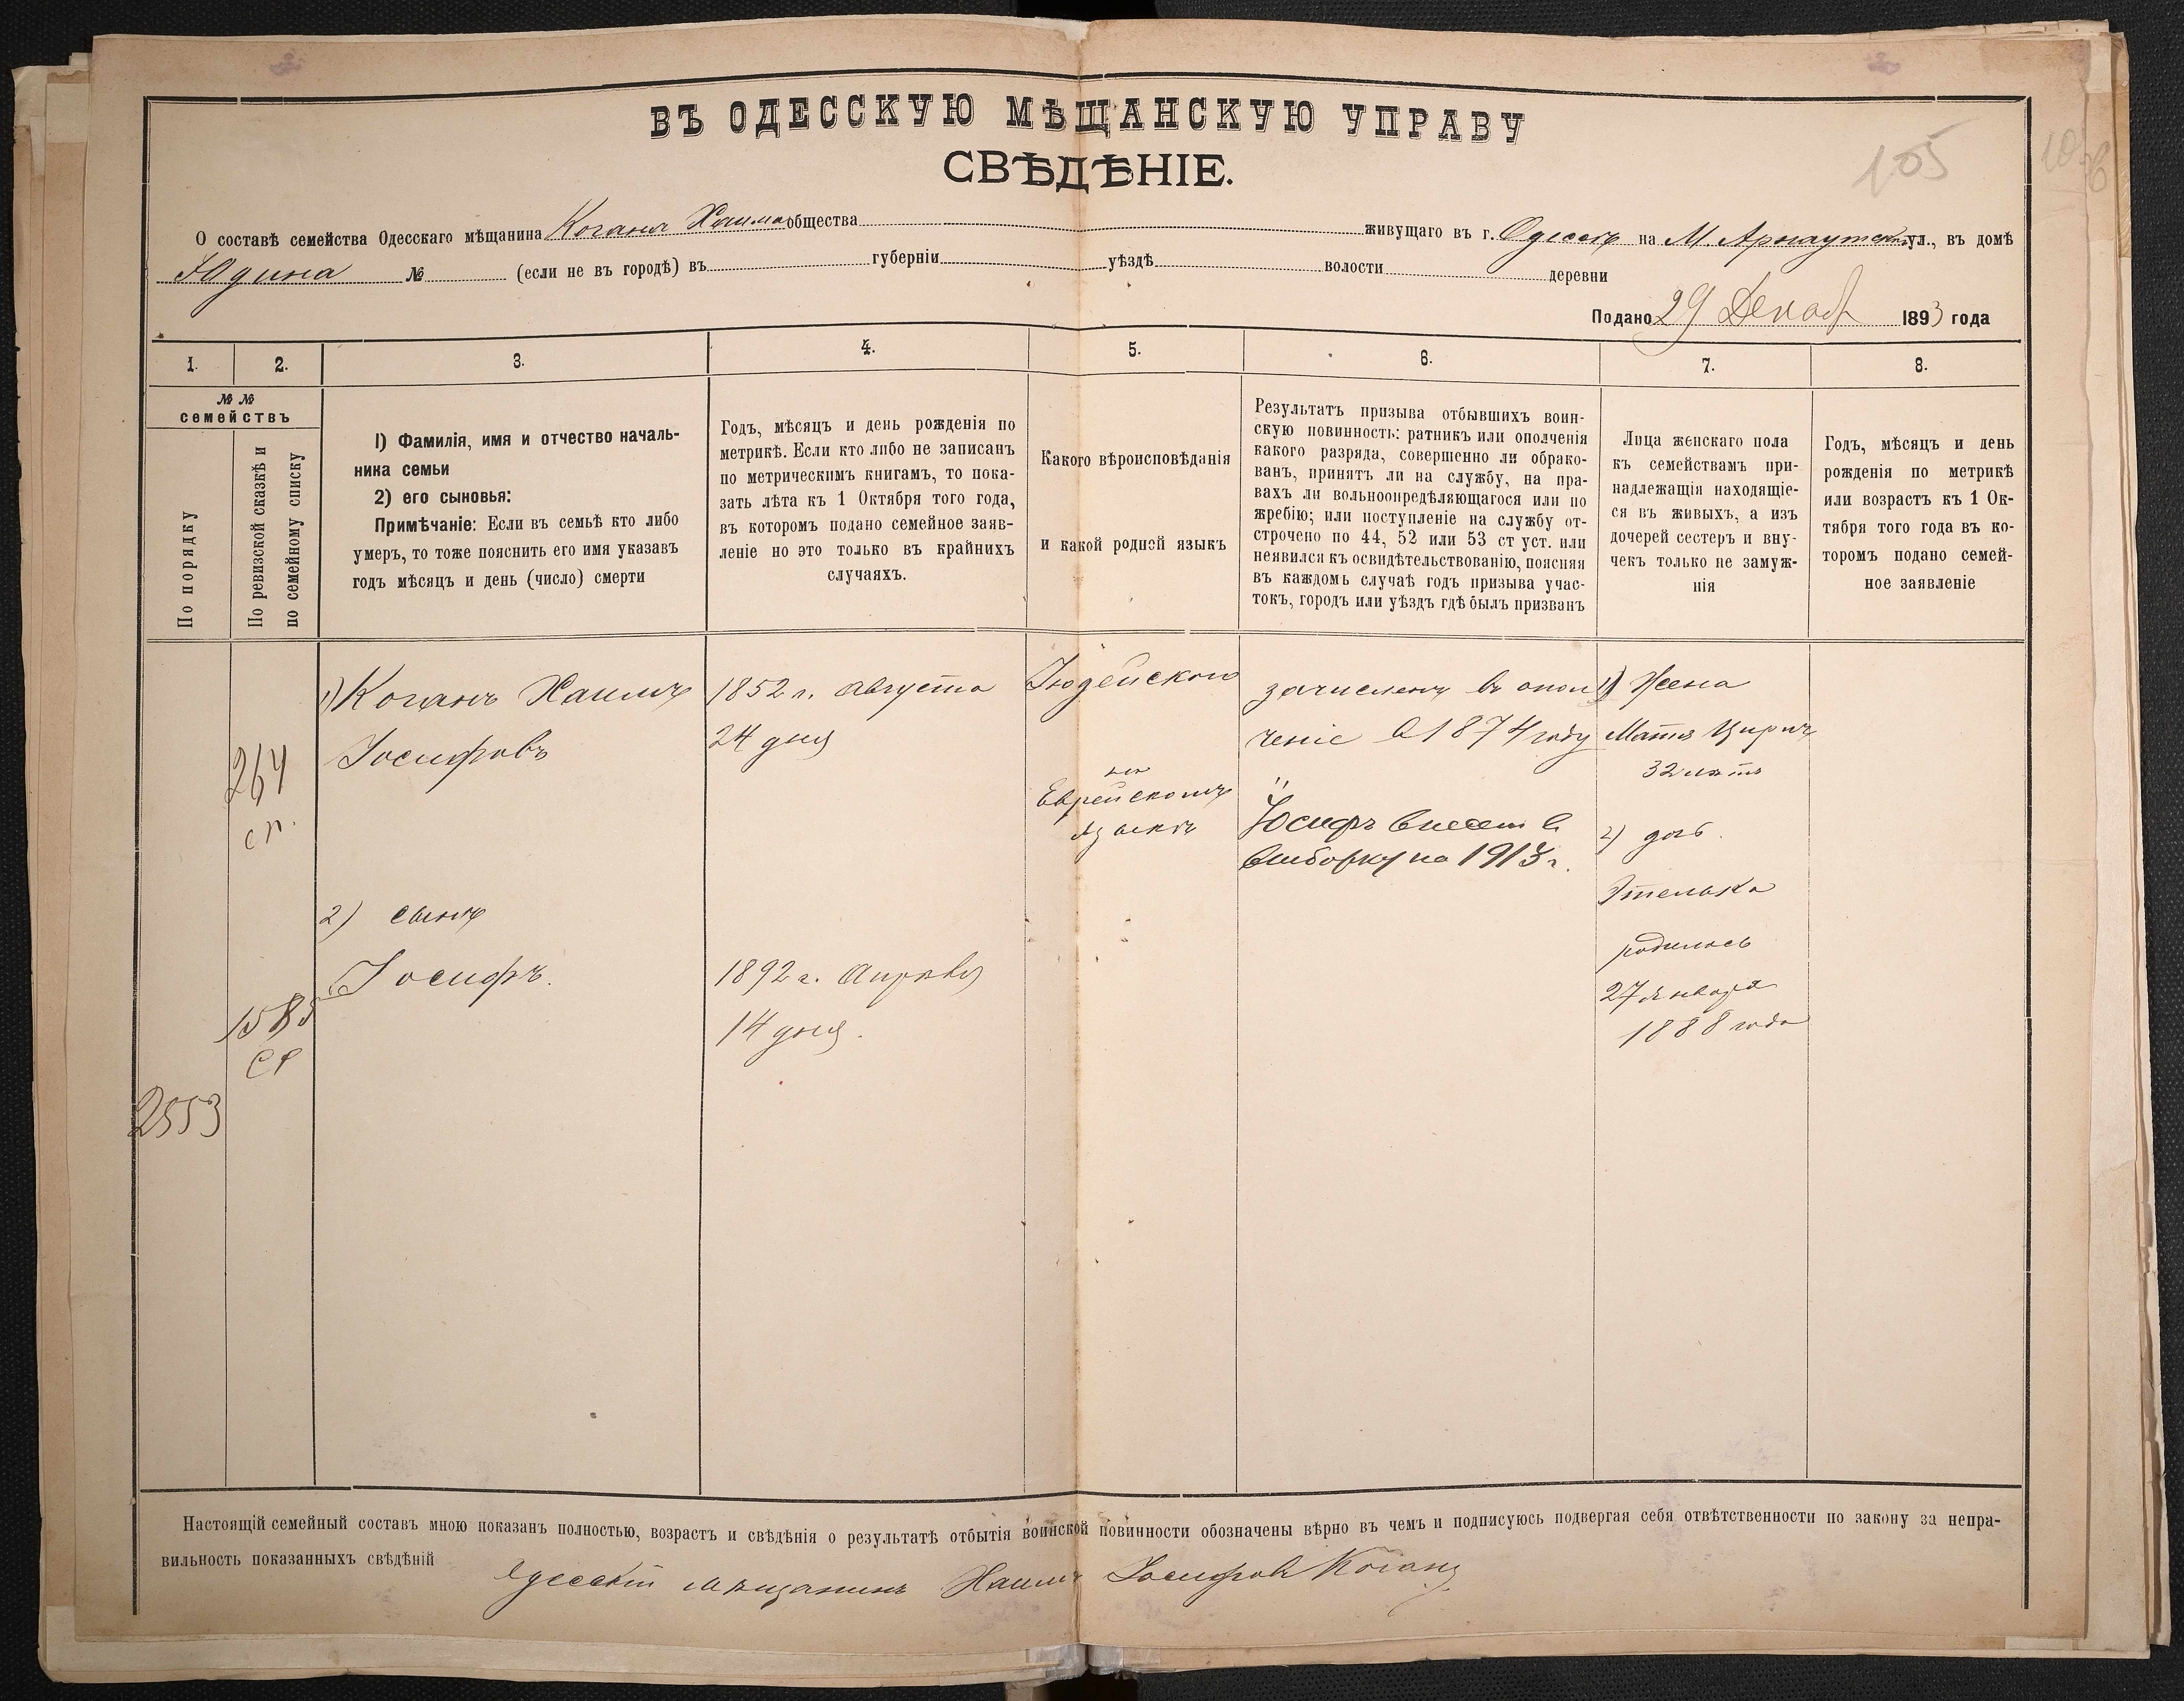 ВЪ ОДЕССКУЮ МѢЩАНСКУЮ УПРАВУ
СВѢДѢНІЕ.
105
О составѣ семейства Одесскаго мѣщанина Когана Хаима общества живущаго въ г. Одессѣ на М Арнаутской ул., въ домѣ
Юдина № (если не въ городѣ) въ губерніи уѣздѣ волости деревни
Подано 29 Декаб 1893 года
1.
2.
3.
4.
5.
6.
7.
8.
№ №
семействъ
По порядку
По ревизской сказкѣ и
по семейному списку
1) Фамилія, имя и отчество началь-
ника семьи
2) его сыновья:
Примѣчаніе: Если въ семьѣ кто либо
умеръ, то тоже пояснить его имя указавъ
годъ мѣсяцъ и день (число) смерти
Годъ, мѣсяцъ и день рожденія по
метрикѣ. Если кто либо не записанъ
по метрическимъ книгамъ, то пока-
зать лѣта къ 1 Октября того года,
въ которомъ подано семейное заяв-
леніе но это только въ крайнихъ
случаяхъ.
Какого вѣроисповѣданія
и какой родной языкъ
Результатъ призыва отбывшихъ воин-
скую повинность: ратникъ или ополченія
какого разряда, совершенно ли обрако-
ванъ, принятъ ли на службу, на пра-
вахъ ли вольноопредѣляющагося или по
жребію; или поступленіе на службу от-
строчено по 44, 52 или 53 ст уст. или
неявился къ освидѣтельствованію, поясняя
въ каждомъ случаѣ годъ призыва учас-
токъ, городъ или уѣздъ гдѣ былъ призванъ
Лица женскаго пола
къ семействамъ при-
надлежащія находящіе-
ся въ живыхъ, а изъ
дочерей сестеръ и вну-
чекъ только не замуж-
нія
Годъ, мѣсяцъ и день
рожденія по метрикѣ
или возрастъ къ 1 Ок-
тября того года въ ко-
торомъ подано семей-
ное заявленіе
264
сп.
1585
2553
1) Коганъ Хаимъ
Іосифовъ
2) сынъ
Іосифъ.
1852 г. августа
24 дня
1892 г. Апрѣля
14 дня.
Іюдейского
на
Еврейскомъ
языкѣ
зачисленъ въ опол
ченіе в 1874 году
Іосифъ внесен в
выборку на 1913 г.
1) Жена
Матя
32 лѣтъ
2) дочь
Этелька
родилась
27 января
1888 года
Настоящій семейный составъ мною показанъ полностью, возрастъ и свѣдѣнія о результатѣ отбытія воинской повинности обозначены вѣрно въ чемъ и подписуюсь подвергая себя отвѣтственности по закону за непра-
вильность показанныхъ свѣдѣній Одесскій мѣщанинъ Хаимъ Іосифов Коганъ